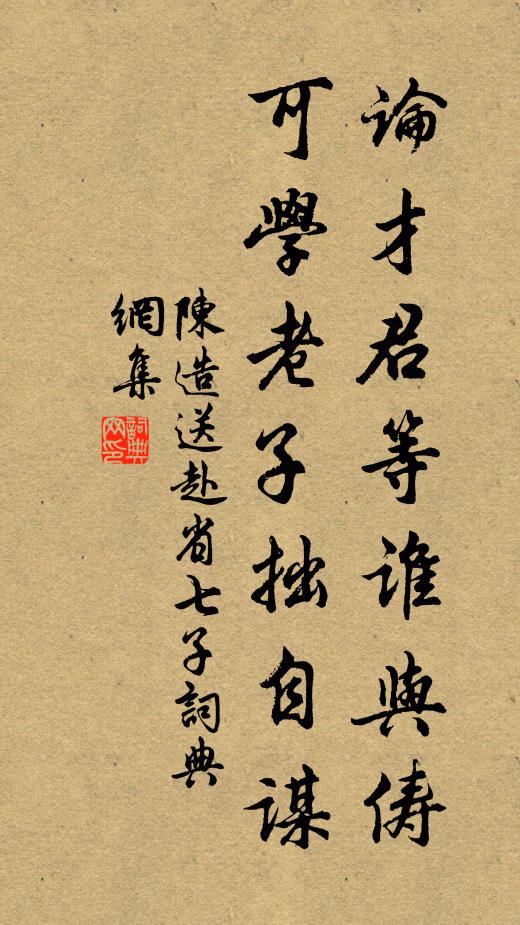 論才君等誰與儔
可學老子拙自謀
陳造送赴省七子詞典
網集
詞典
网印